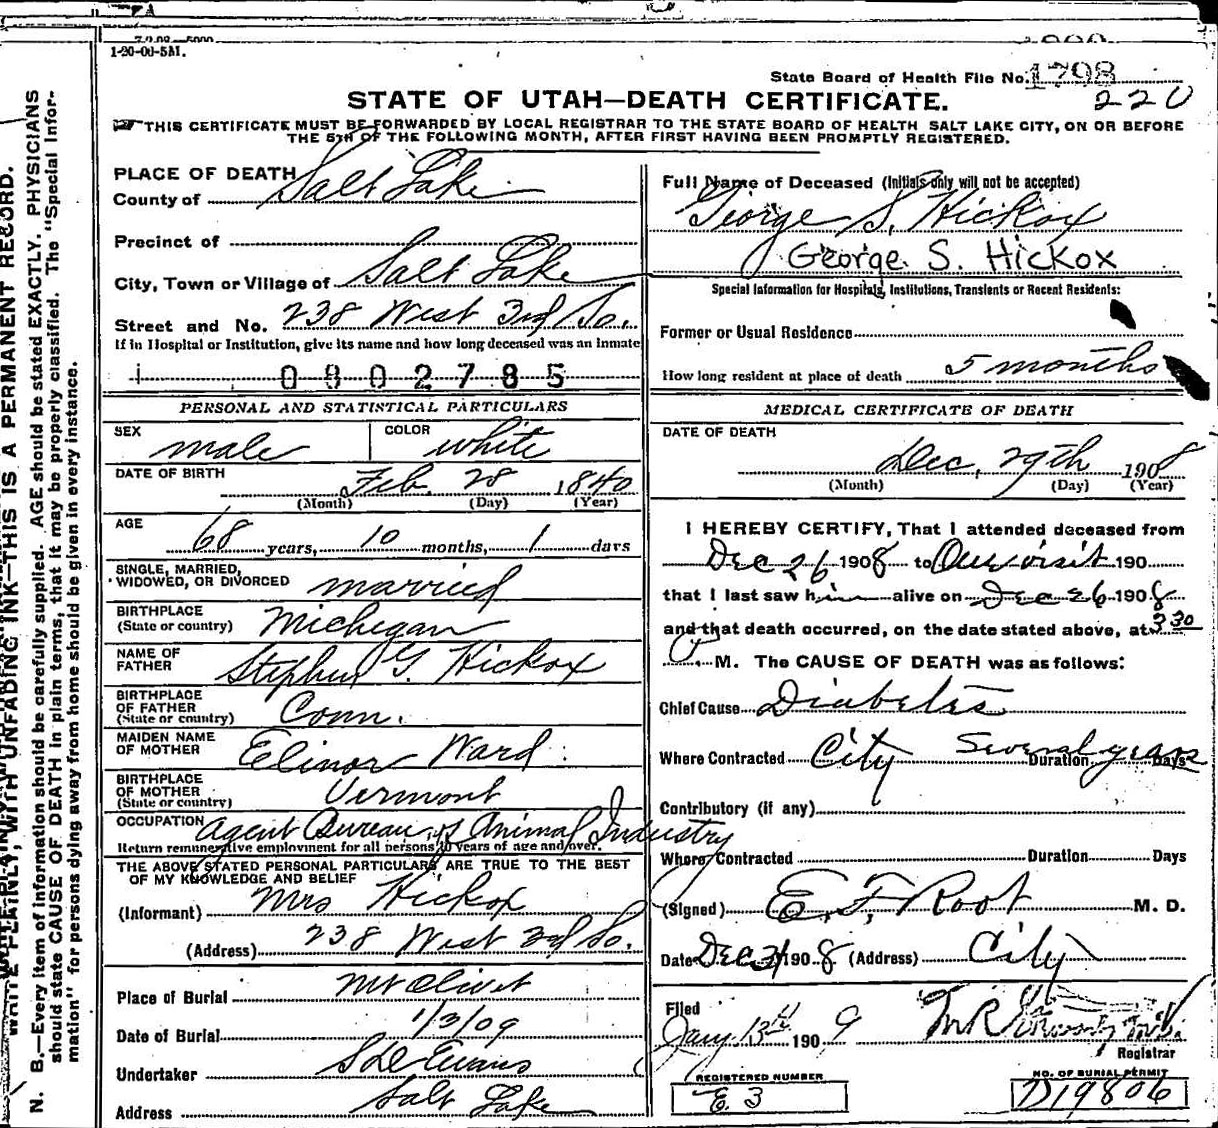 1-20-00-5M.
State Board of Health File No. 1798
220
STATE OF UTAH—DEATH CERTIFICATE.
THIS CERTIFICATE MUST BE FORWARDED BY LOCAL REGISTRAR TO THE STATE BOARD OF HEALTH SALT LAKE CITY, ON OR BEFORE
THE 5TH OF THE FOLLOWING MONTH, AFTER FIRST HAVING BEEN PROMPTLY REGISTERED.
PLACE OF DEATH
County of Salt Lake
Precinct of
City, Town or Village of Salt Lake
Street and No. 238 West 3rd So.
If in Hospital or Institution, give its name and how long deceased was an inmate
0802785
PERSONAL AND STATISTICAL PARTICULARS
SEX male COLOR white
DATE OF BIRTH Feb. 28 1840
(Month) (Day) (Year)
AGE 68 years, 10 months, 1 days
SINGLE, MARRIED,
WIDOWED, OR DIVORCED married
BIRTHPLACE
(State or country) Michigan
NAME OF
FATHER Stephen G. Hickox
BIRTHPLACE
OF FATHER
(State or country) Conn.
MAIDEN NAME
OF MOTHER Elinor Ward
BIRTHPLACE
OF MOTHER
(State or country) Vermont
OCCUPATION Agent Bureau of Animal Industry
Return remunerative employment for all persons 10 years of age and over.
THE ABOVE STATED PERSONAL PARTICULARS ARE TRUE TO THE BEST
OF MY KNOWLEDGE AND BELIEF
(Informant) Mrs Hickox
(Address) 238 West 3rd So.
Place of Burial Mt Olivet
Date of Burial 1/3/09
Undertaker S D Evans
Address Salt Lake
Full Name of Deceased (Initials only will not be accepted)
George S. Hickox
George S. Hickox
Special Information for Hospitals, Institutions, Transients or Recent Residents:
Former or Usual Residence
How long resident at place of death 5 months
MEDICAL CERTIFICATE OF DEATH
DATE OF DEATH
Dec. 29th 1908
(Month) (Day) (Year)
I HEREBY CERTIFY, That I attended deceased from
Dec 26 1908 to One visit 190
that I last saw him alive on Dec 26 1908
and that death occurred, on the date stated above, at 3 30
M. The CAUSE OF DEATH was as follows:
Chief Cause Diabetes
Where Contracted City Duration Several years Days
Contributory (if any)
Where Contracted Duration Days
(Signed) E. F. Root M. D.
Date Dec 31 1908 (Address) City
Filed
Jany 13th 1909
Registrar
REGISTERED NUMBER
E 3
NO. OF BURIAL PERMIT
D19806
N. B.—Every item of information should be carefully supplied. AGE should be stated EXACTLY. PHYSICIANS
should state CAUSE OF DEATH in plain terms, that it may be properly classified. The "Special Infor-
mation" for persons dying away from home should be given in every instance.
WRITE PLAINLY, WITH UNFADING INK—THIS IS A PERMANENT RECORD.